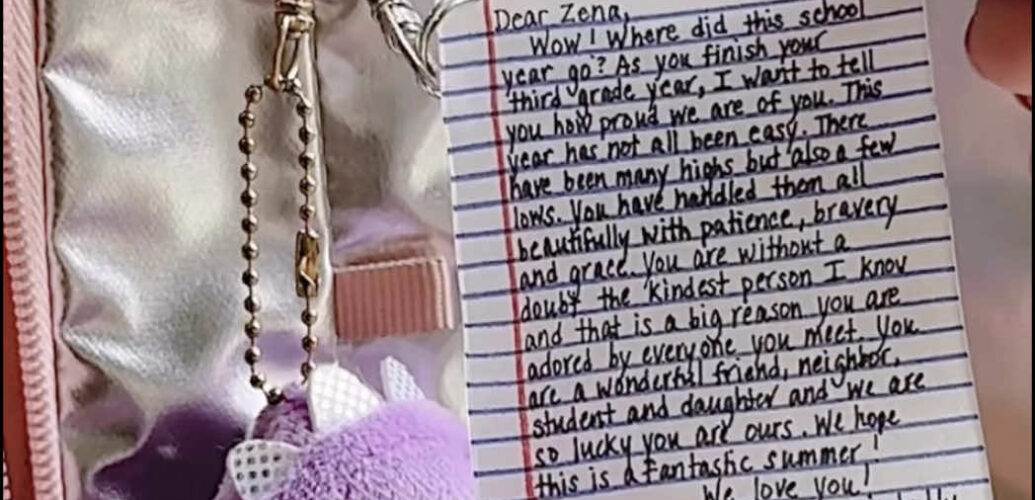 Dear Zena,
Wow! Where did this school
year go? As you finish your
third grade year, I want to tell
you how proud we are of you. This
year has not all been easy. There
have been many highs but also a few
lows. You have handled them all
beautifully with patience, bravery
and grace. You are without a
doubt the kindest person I know
and that is a big reason you are
adored by everyone you meet. You
are a wonderful friend, neighbor,
student and daughter and we are
so lucky you are ours. We hope
this is a fantastic summer!
We love you!